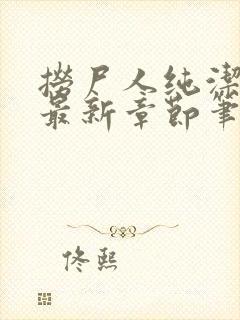 捞尸人纯洁
最新章节笔
佟熙